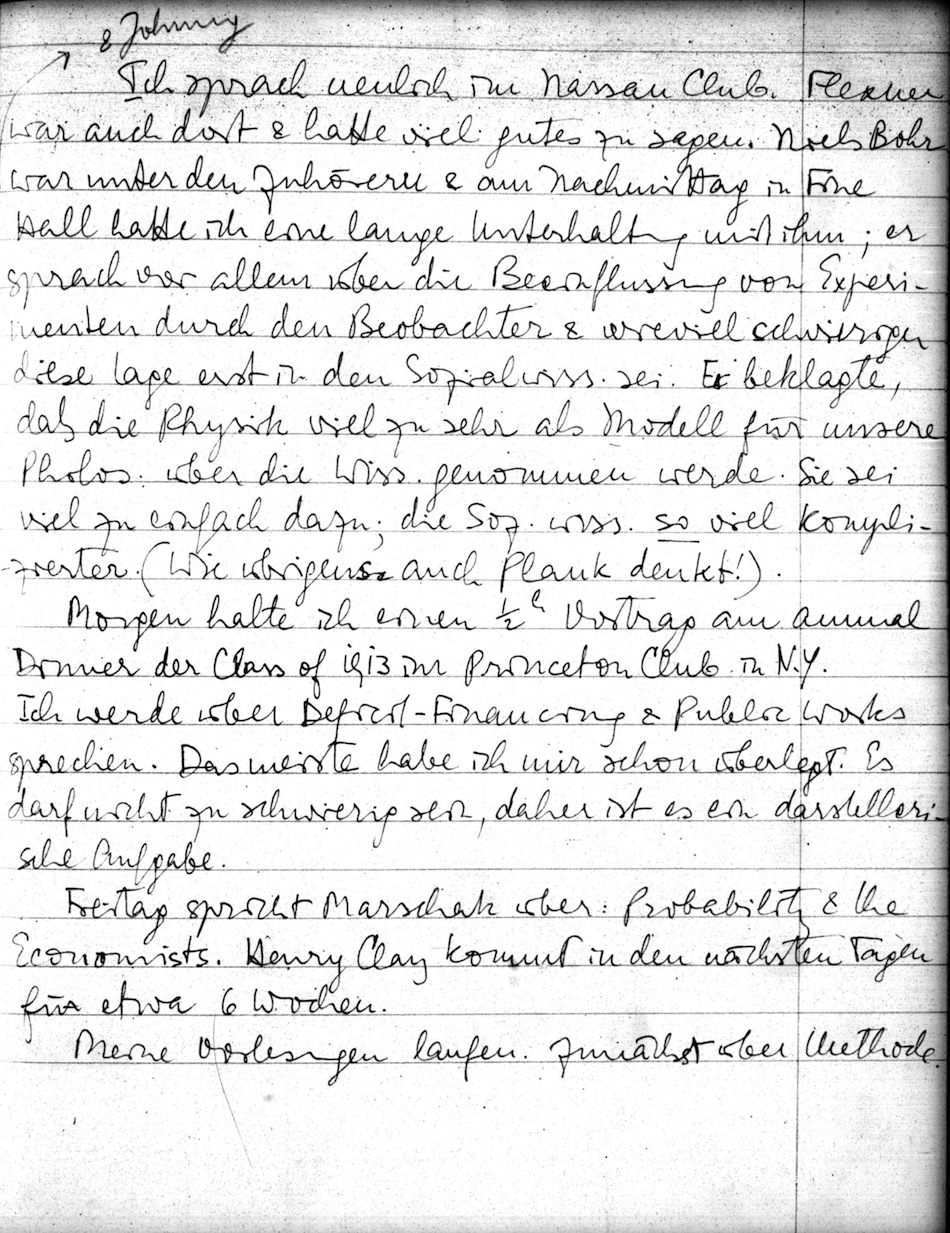 & Johnny
Ich sprach neulich im Nassau Club. Flexner
war auch dort & hatte viel gutes zu sagen. Niels Bohr
war unter den Zuhörern & am Nachmittag in Fine
Hall hatte ich eine lange Unterhaltung mit ihm; er
sprach vor allem über die Beeinflussung von Experi-
menten durch den Beobachter & wieviel schwieriger
diese Lage erst in den Sozialwiss. sei. Er beklagte,
daß die Physik viel zu sehr als Modell für unsere
Philos. über die Wiss. genommen werde. Sie sei
viel zu einfach dazu; die Soz. wiss. so viel kompli-
zierter. (Wie übrigens auch Plank denkt!).
Morgen halte ich einen ½ h Vortrag am annual
Dinner der Class of 1913 im Princeton Club in N.Y.
Ich werde über Deficit-Financing & Public Works
sprechen. Das meiste habe ich mir schon überlegt. Es
darf nicht zu schwierig sein, daher ist es ein darstelleri-
sche Aufgabe.
Freitag spricht Marschak über: Probability & the
Economists. Henry Clay kommt in den nächsten Tagen
für etwa 6 Wochen.
Meine Vorlesungen laufen. Zunächst über Methode.